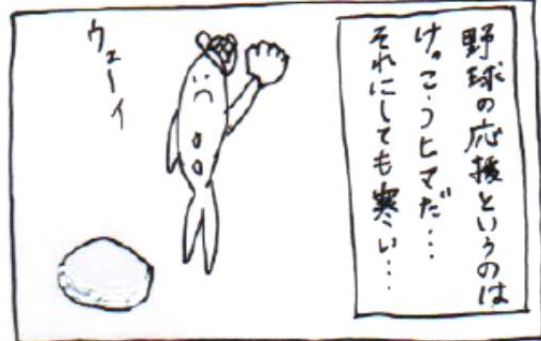 野球の応援というのは
けっこうヒマだ…
それにしても寒い…
ウェーイ